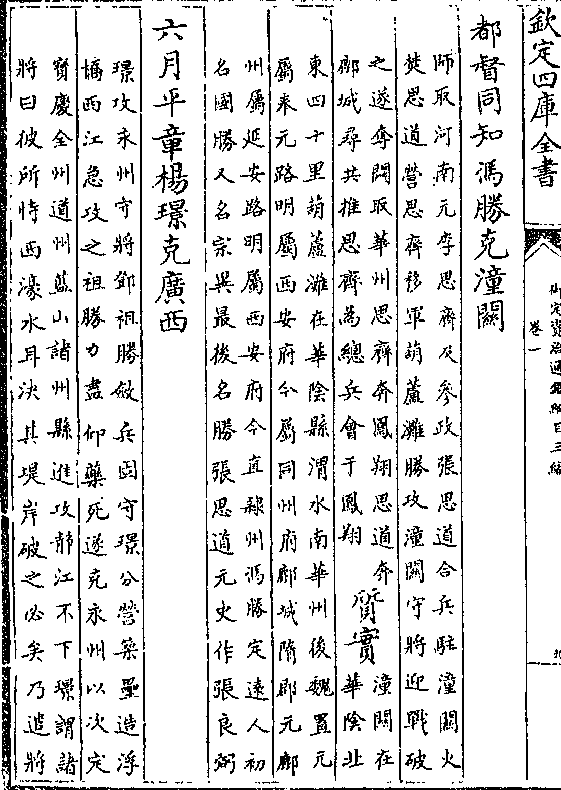 欽定四庫全書
御定資治通鑑綱目三編
卷一
都督同知馮勝克潼關
師取河南元李思齊及參政張思道合兵駐潼關火
焚思道營思齊移軍葫蘆灘勝攻潼關守將迎戰破
之遂奪關取華州思齊奔鳳翔思道奔
鄜城尋共推思齊為總兵會于鳳翔
質實
潼關在
華陰北
東四十里葫蘆灘在華陰縣渭水南華州後魏置元
屬奉元路明屬西安府今屬同州府鄜城隋郡元鄜
州屬延安路明屬西安府今直隸州馮勝定遠人初
名國勝又名宗異最後名勝張思道元史作張良弼
六月平章楊璟克廣西
璟攻永州守將鄧祖勝斂兵固守璟分營築壘造浮
橋西江急攻之祖勝力盡仰藥死遂克永州以次定
寶慶全州道州藍山諸州縣進攻靜江不下璟謂諸
將曰彼所恃西濠水耳決其堤岸破之必矣乃遣將